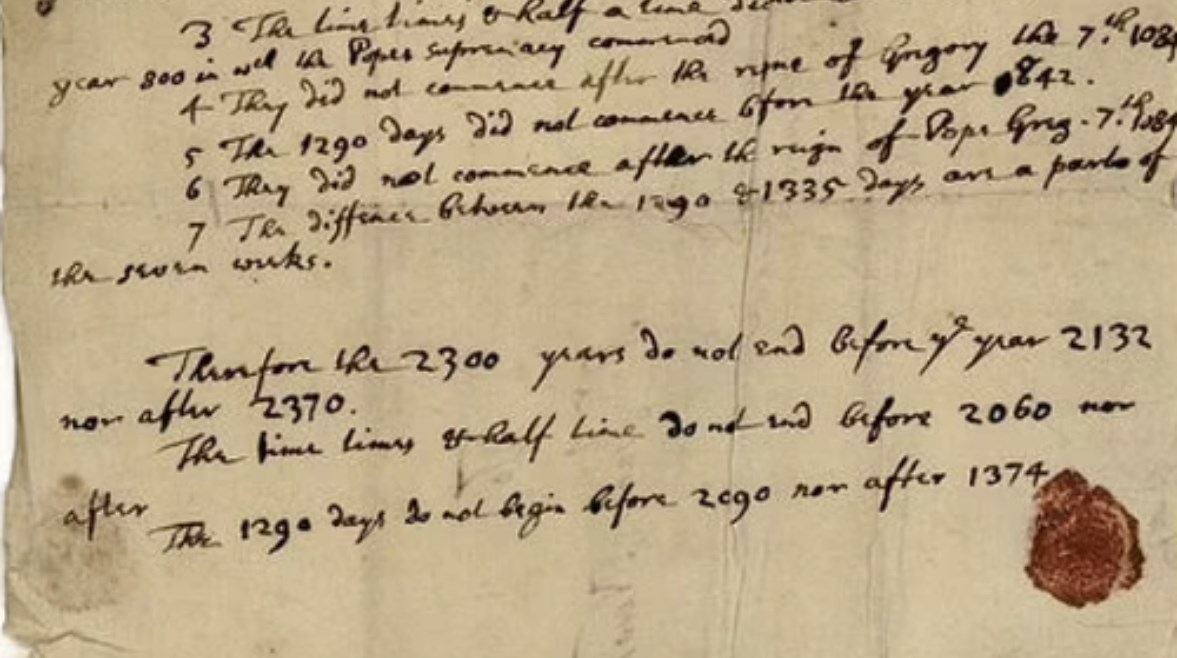 3 The time times & half a time
year 800 in wch the Popes supremacy commenced
4 They did not commence after the reigne of Gregory the 7th. 1084
5 The 1290 days did not commence bfore the year 842.
6 They did not commence after the reign of Pope Greg. 7th. 1084
7 The diffence between the 1290 & 1335 days are a parts of
the seven weeks.
Therefore the 2300 years do not end before ye year 2132
nor after 2370.
The time times & half time do not end before 2060 nor
after
The 1290 days do not begin before 2090 nor after 1374